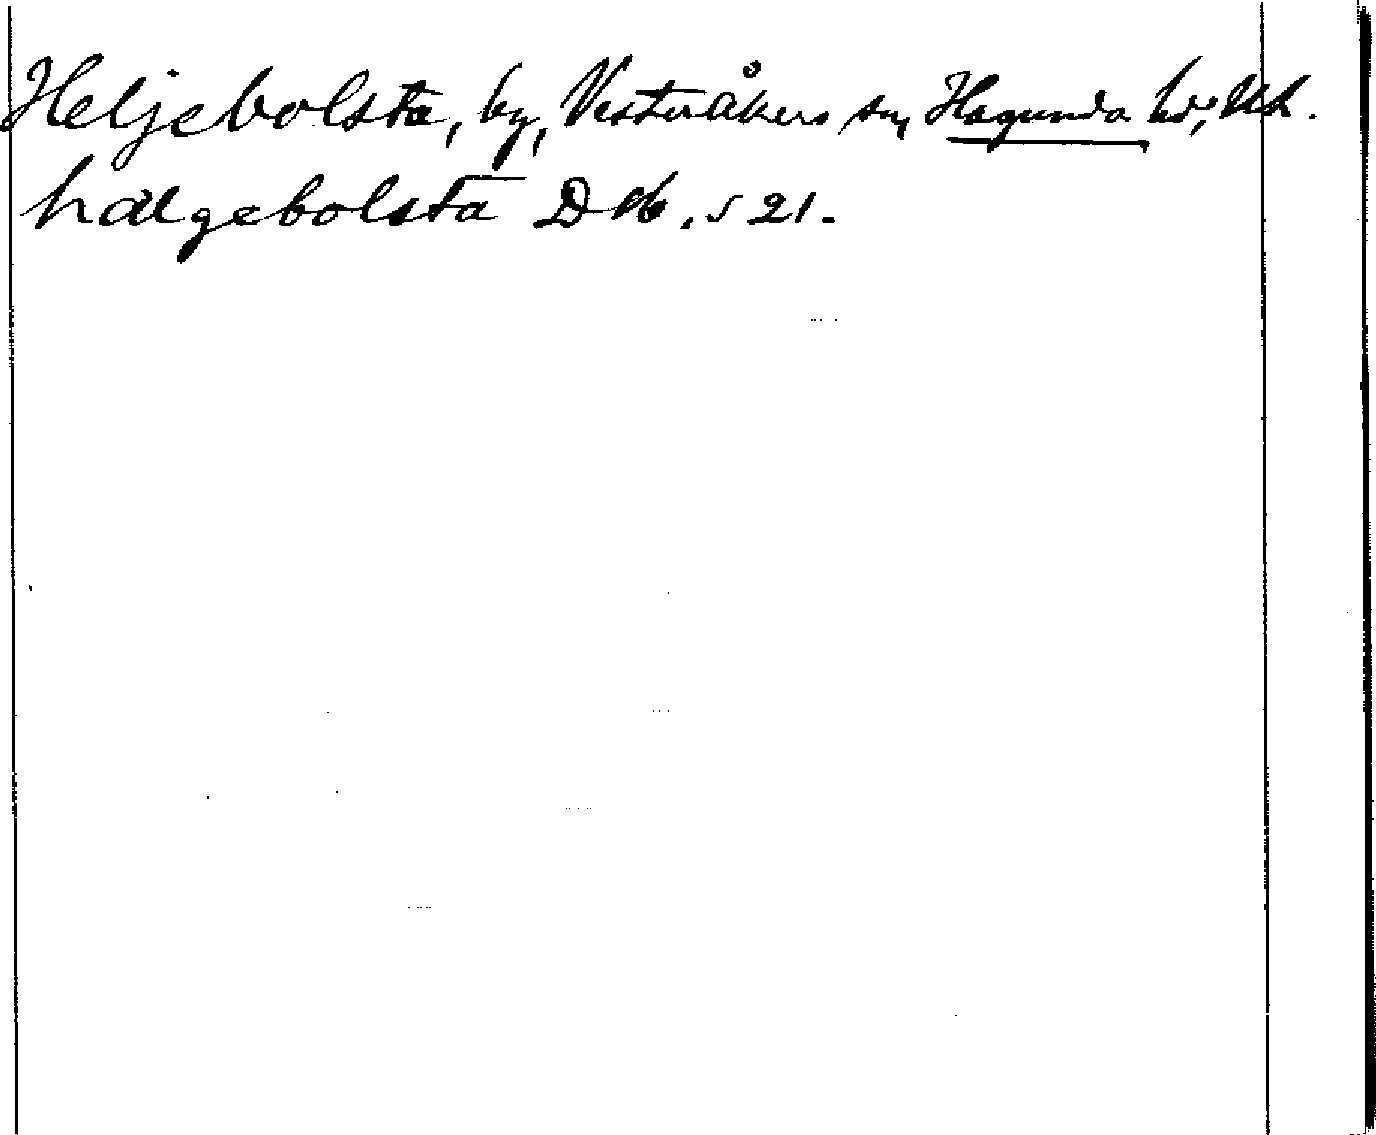 Heljebolsta, by, Vesteråkers sn, Hagunda hd, Upl.
hælgebolsta D 16. s 21.